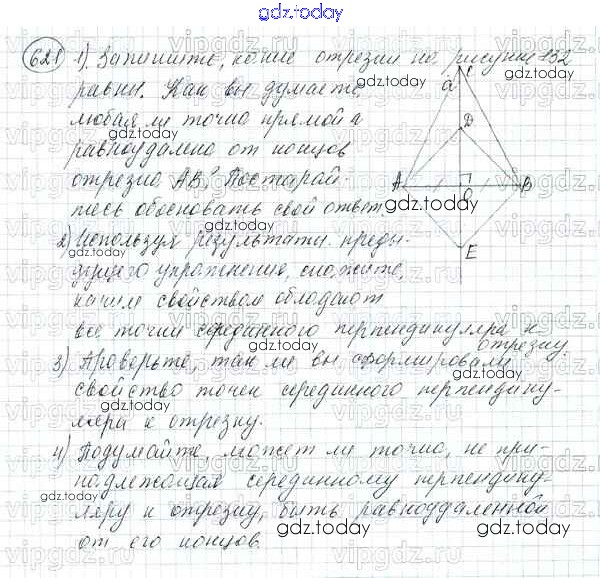 gdz.today
621 1). Запишите, какие отрезки на рисунке 132
равны. Как вы думаете,
любая ли точка прямой a
равноудалена от концов
отрезка AB? Постарай-
тесь обосновать свой ответ
2) Используя результаты преды-
дущего упражнения, скажите,
каким свойством обладают
все точки серединного перпендикуляра к
отрезку.
3) Проверьте, так ли вы сформировали
свойство точек серединного перпендику-
ляра к отрезку.
4) Подумайте, может ли точка, не при-
надлежащая серединному перпендику-
ляру к отрезку, быть равноудаленной
от его концов.
C
a
D
A
O
B
E
gdz.today
vipgdz.com